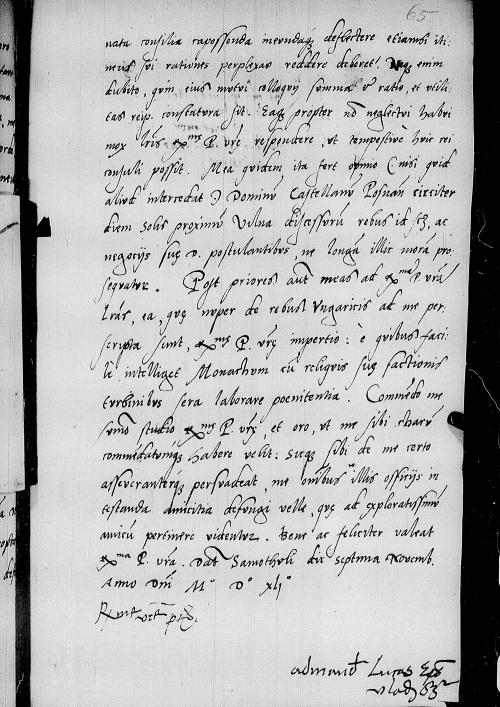 65
nata consilia capessenda ineundaq3 deflectere etiamsi iti-
neris sui rationes perplexas reddere deberet. Neq3 enim
dubito, quin eius mutui colloquij summa et ratio, et utili-
tas reip. constatura sit. Eaq3 propter nō neglectui habui
mox lrīs Exmę P. vrę respondere, ut tempestivè huic rei
consuli possit. Mea quidem ita fert opinio (nisi quid
aliud intercedat) Dominū Castellanū Posnań circiter
diem solis proximū Vilna discessurū rebus id , ac
negocijs suę D. postulantibus, ne longā illic morā pro-
sequatur. Post priores autē meas ad Exmā P. vrā
lrās, ea, quę nuper de rebus Ungaricis ad me per-
scripta sunt, Exmę P. vrę impertio: è quibus faci-
le intelliget Monachum cū reliquis suę factionis
turbinibus sera laborare poenitentia. Commēdo me
sūmo studio Exmę P. vrę, et oro, ut me sibi charū
commēdatumq3 habere velit: sicq3 sibi de me certo
asseveranterq3 persuadeat, me omībus illis officijs in
testanda amicitia defungi velle, quę ad exploratissimū
amicū pertinere videntur. Bene ac feliciter valeat
Exma P. vra. Datū Samboriae die septima Novemb.
Anno Dnī Mº Dº xliº
admand Lucas Ep̄s